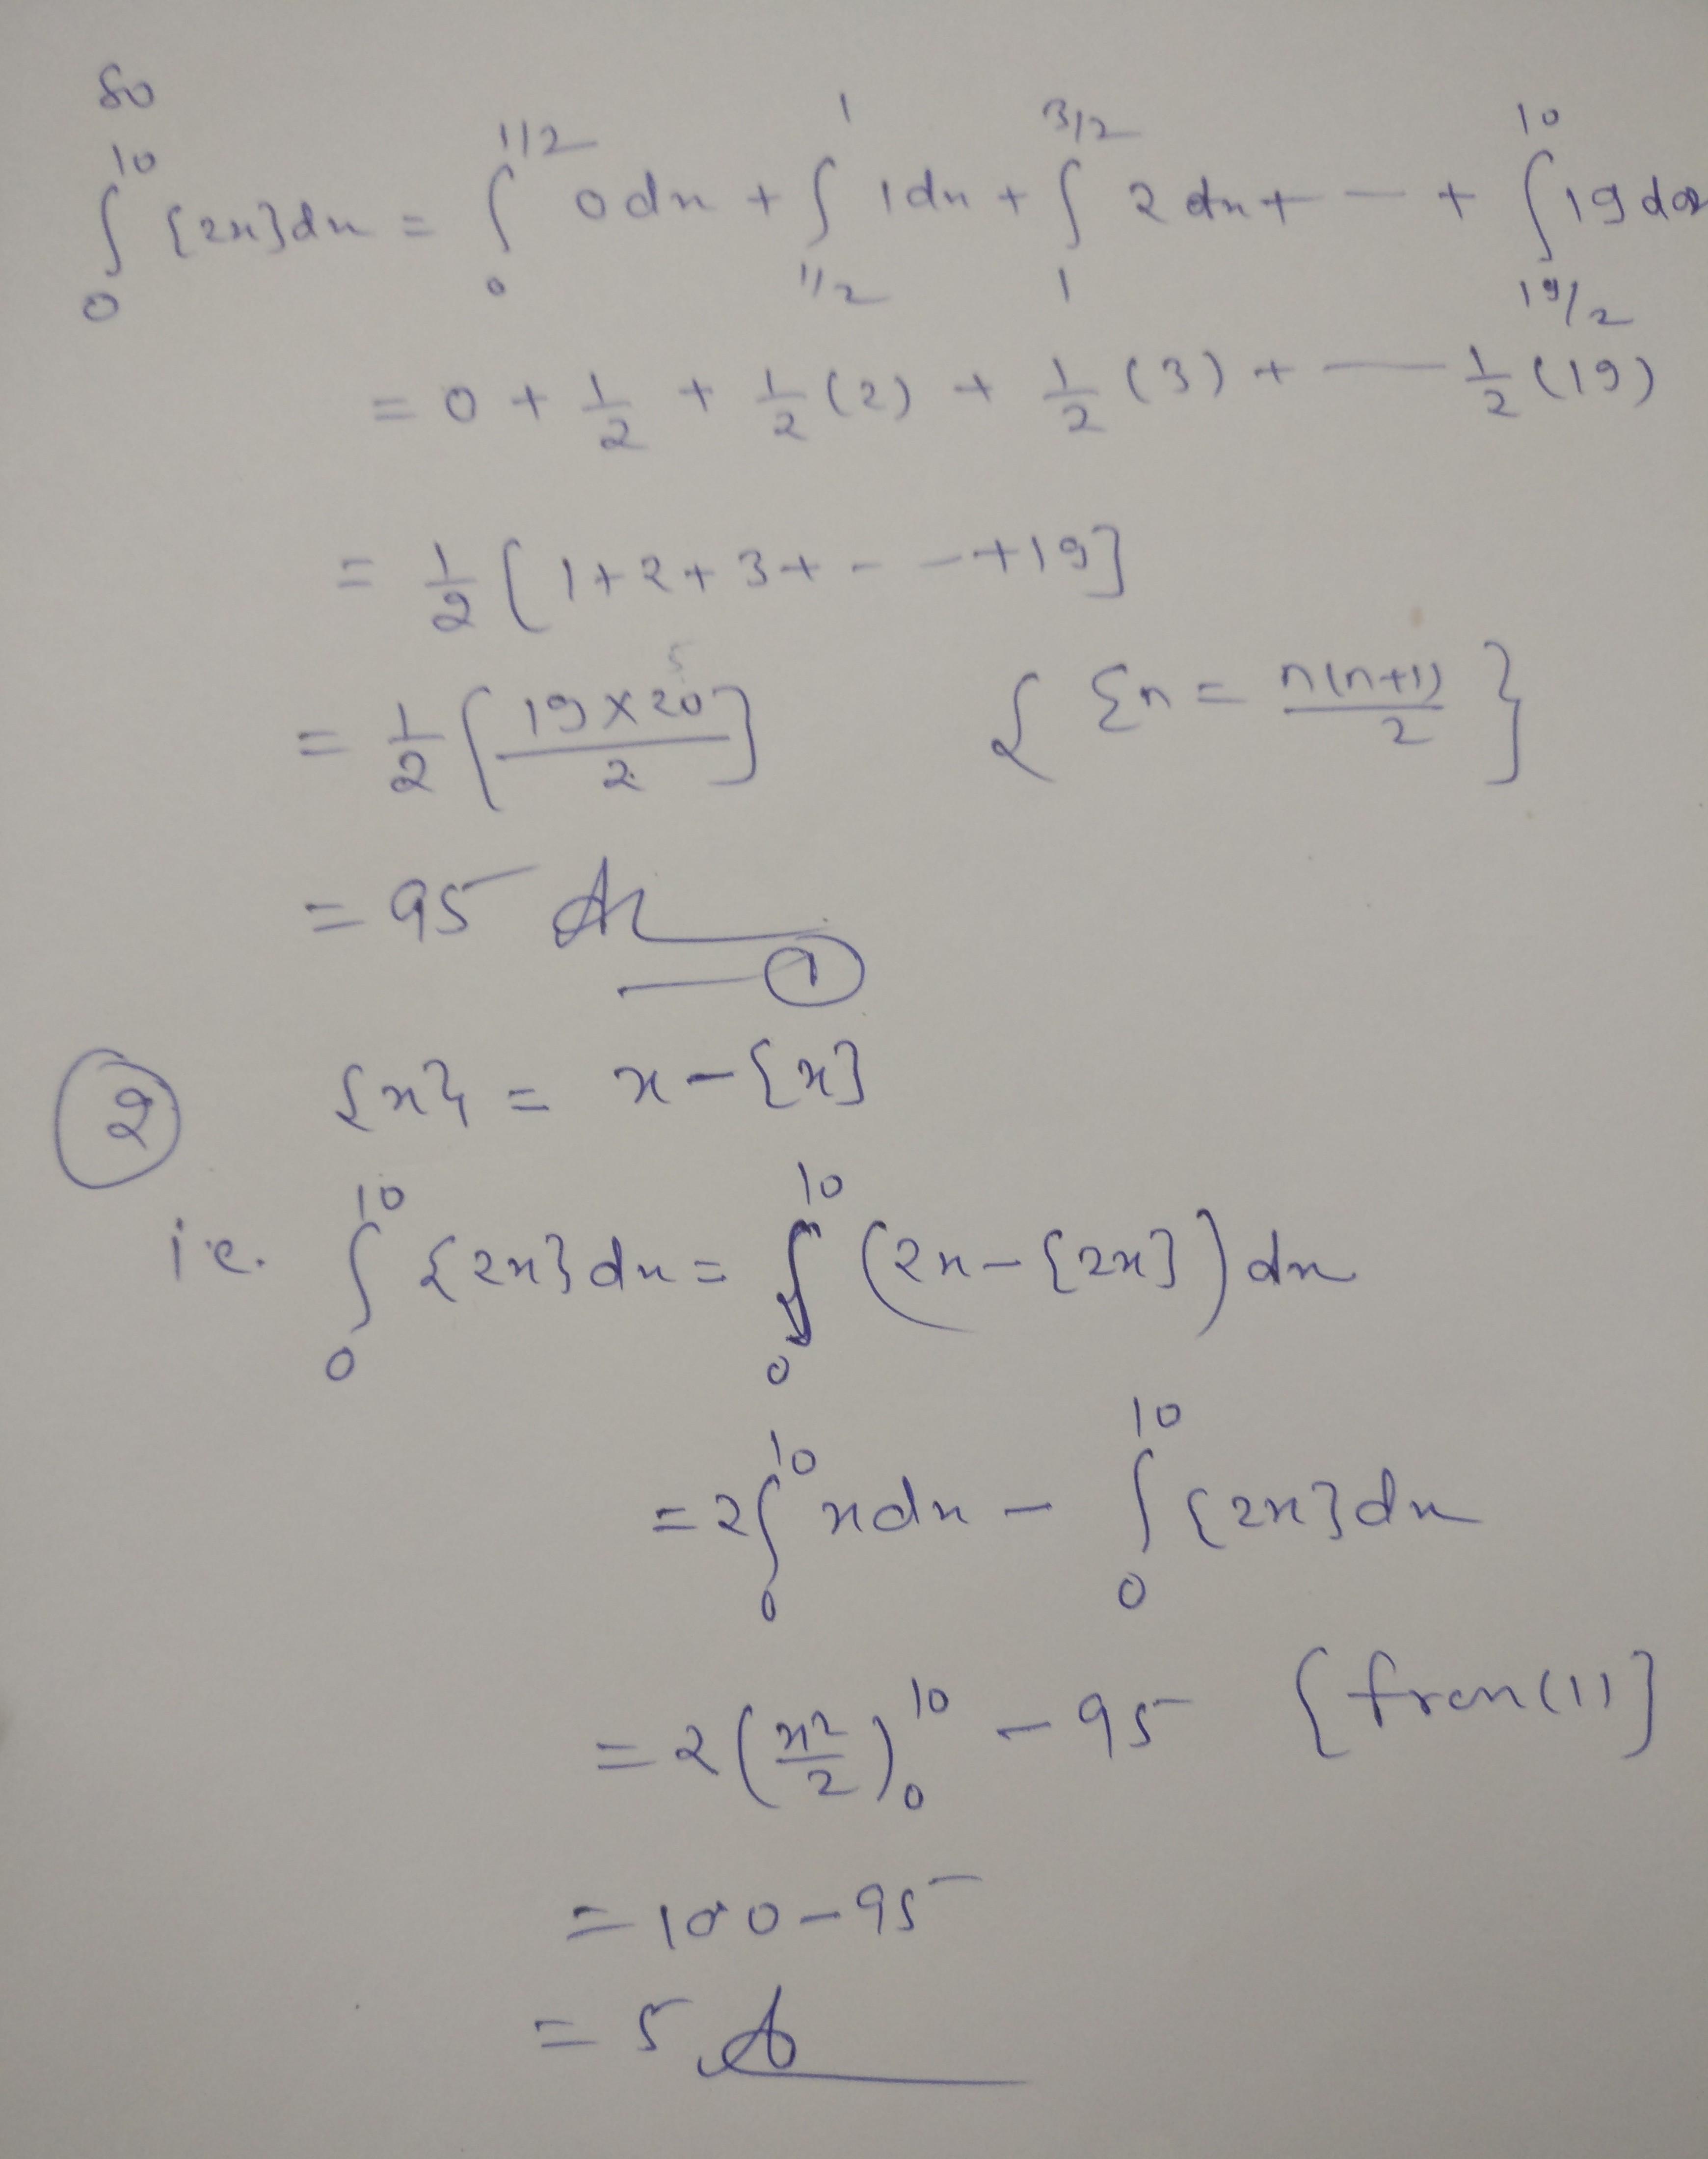 So
∫₀¹⁰ [2x]dx = ∫₀^{1/2} 0dx + ∫_{1/2}^{1} 1dx + ∫₁^{3/2} 2dx + — + ∫_{19/2}^{10} 19dx
= 0 + 1/2 + 1/2 (2) + 1/2 (3) + — 1/2 (19)
= 1/2 [1+2+3+ - - +19]
= 1/2 [19×20/2] { Σn = n(n+1)/2 }
= 95 A
— ①
② {x} = x-[x]
i.e. ∫₀¹⁰ {2x}dx = ∫₀¹⁰ (2x-[2x])dx
= 2∫₀¹⁰ xdx - ∫₀¹⁰ [2x]dx
= 2(x²/2)₀¹⁰ - 95 {from(1)]
= 100-95
= 5 A